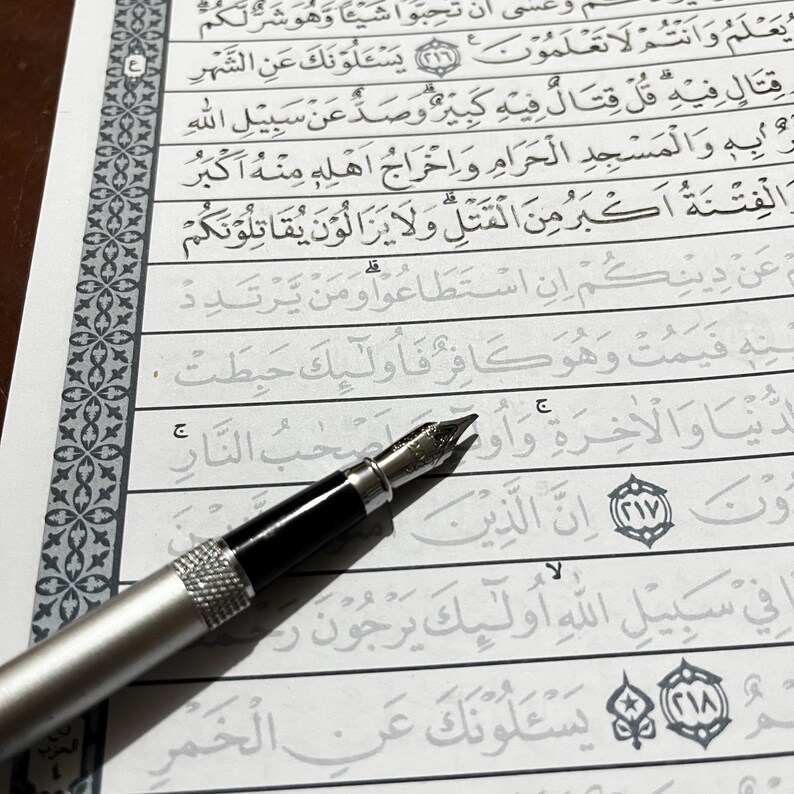 وَعَسٰى اَنْ تُحِبُّوا شَيْـًٔا وَهُوَ شَرٌّ لَكُمْۜ
يَعْلَمُ وَاَنْتُمْ لَا تَعْلَمُوْنَ ࣖ ٢١٦ يَسْـَٔلُوْنَكَ عَنِ الشَّهْرِ
قِتَالٍ فِيْهِۗ قُلْ قِتَالٌ فِيْهِ كَبِيْرٌۗ وَصَدٌّ عَنْ سَبِيْلِ اللّٰهِ
بِهٖ وَالْمَسْجِدِ الْحَرَامِ وَاِخْرَاجُ اَهْلِهٖ مِنْهُ اَكْبَرُ
وَالْفِتْنَةُ اَكْبَرُ مِنَ الْقَتْلِۗ وَلَا يَزَالُوْنَ يُقَاتِلُوْنَكُمْ
عَنْ دِيْنِكُمْ اِنِ اسْتَطَاعُوْاۗ وَمَنْ يَّرْتَدِدْ
فَيَمُتْ وَهُوَ كَافِرٌ فَاُولٰۤىِٕكَ حَبِطَتْ
الدُّنْيَا وَالْاٰخِرَةِۚ اَصْحٰبُ النَّارِۚ
٢١٧ اِنَّ الَّذِيْنَ
فِيْ سَبِيْلِ اللّٰهِۙ اُولٰۤىِٕكَ يَرْجُوْنَ
٢١٨ يَسْـَٔلُوْنَكَ عَنِ الْخَمْرِ
ع
الحزب
٤